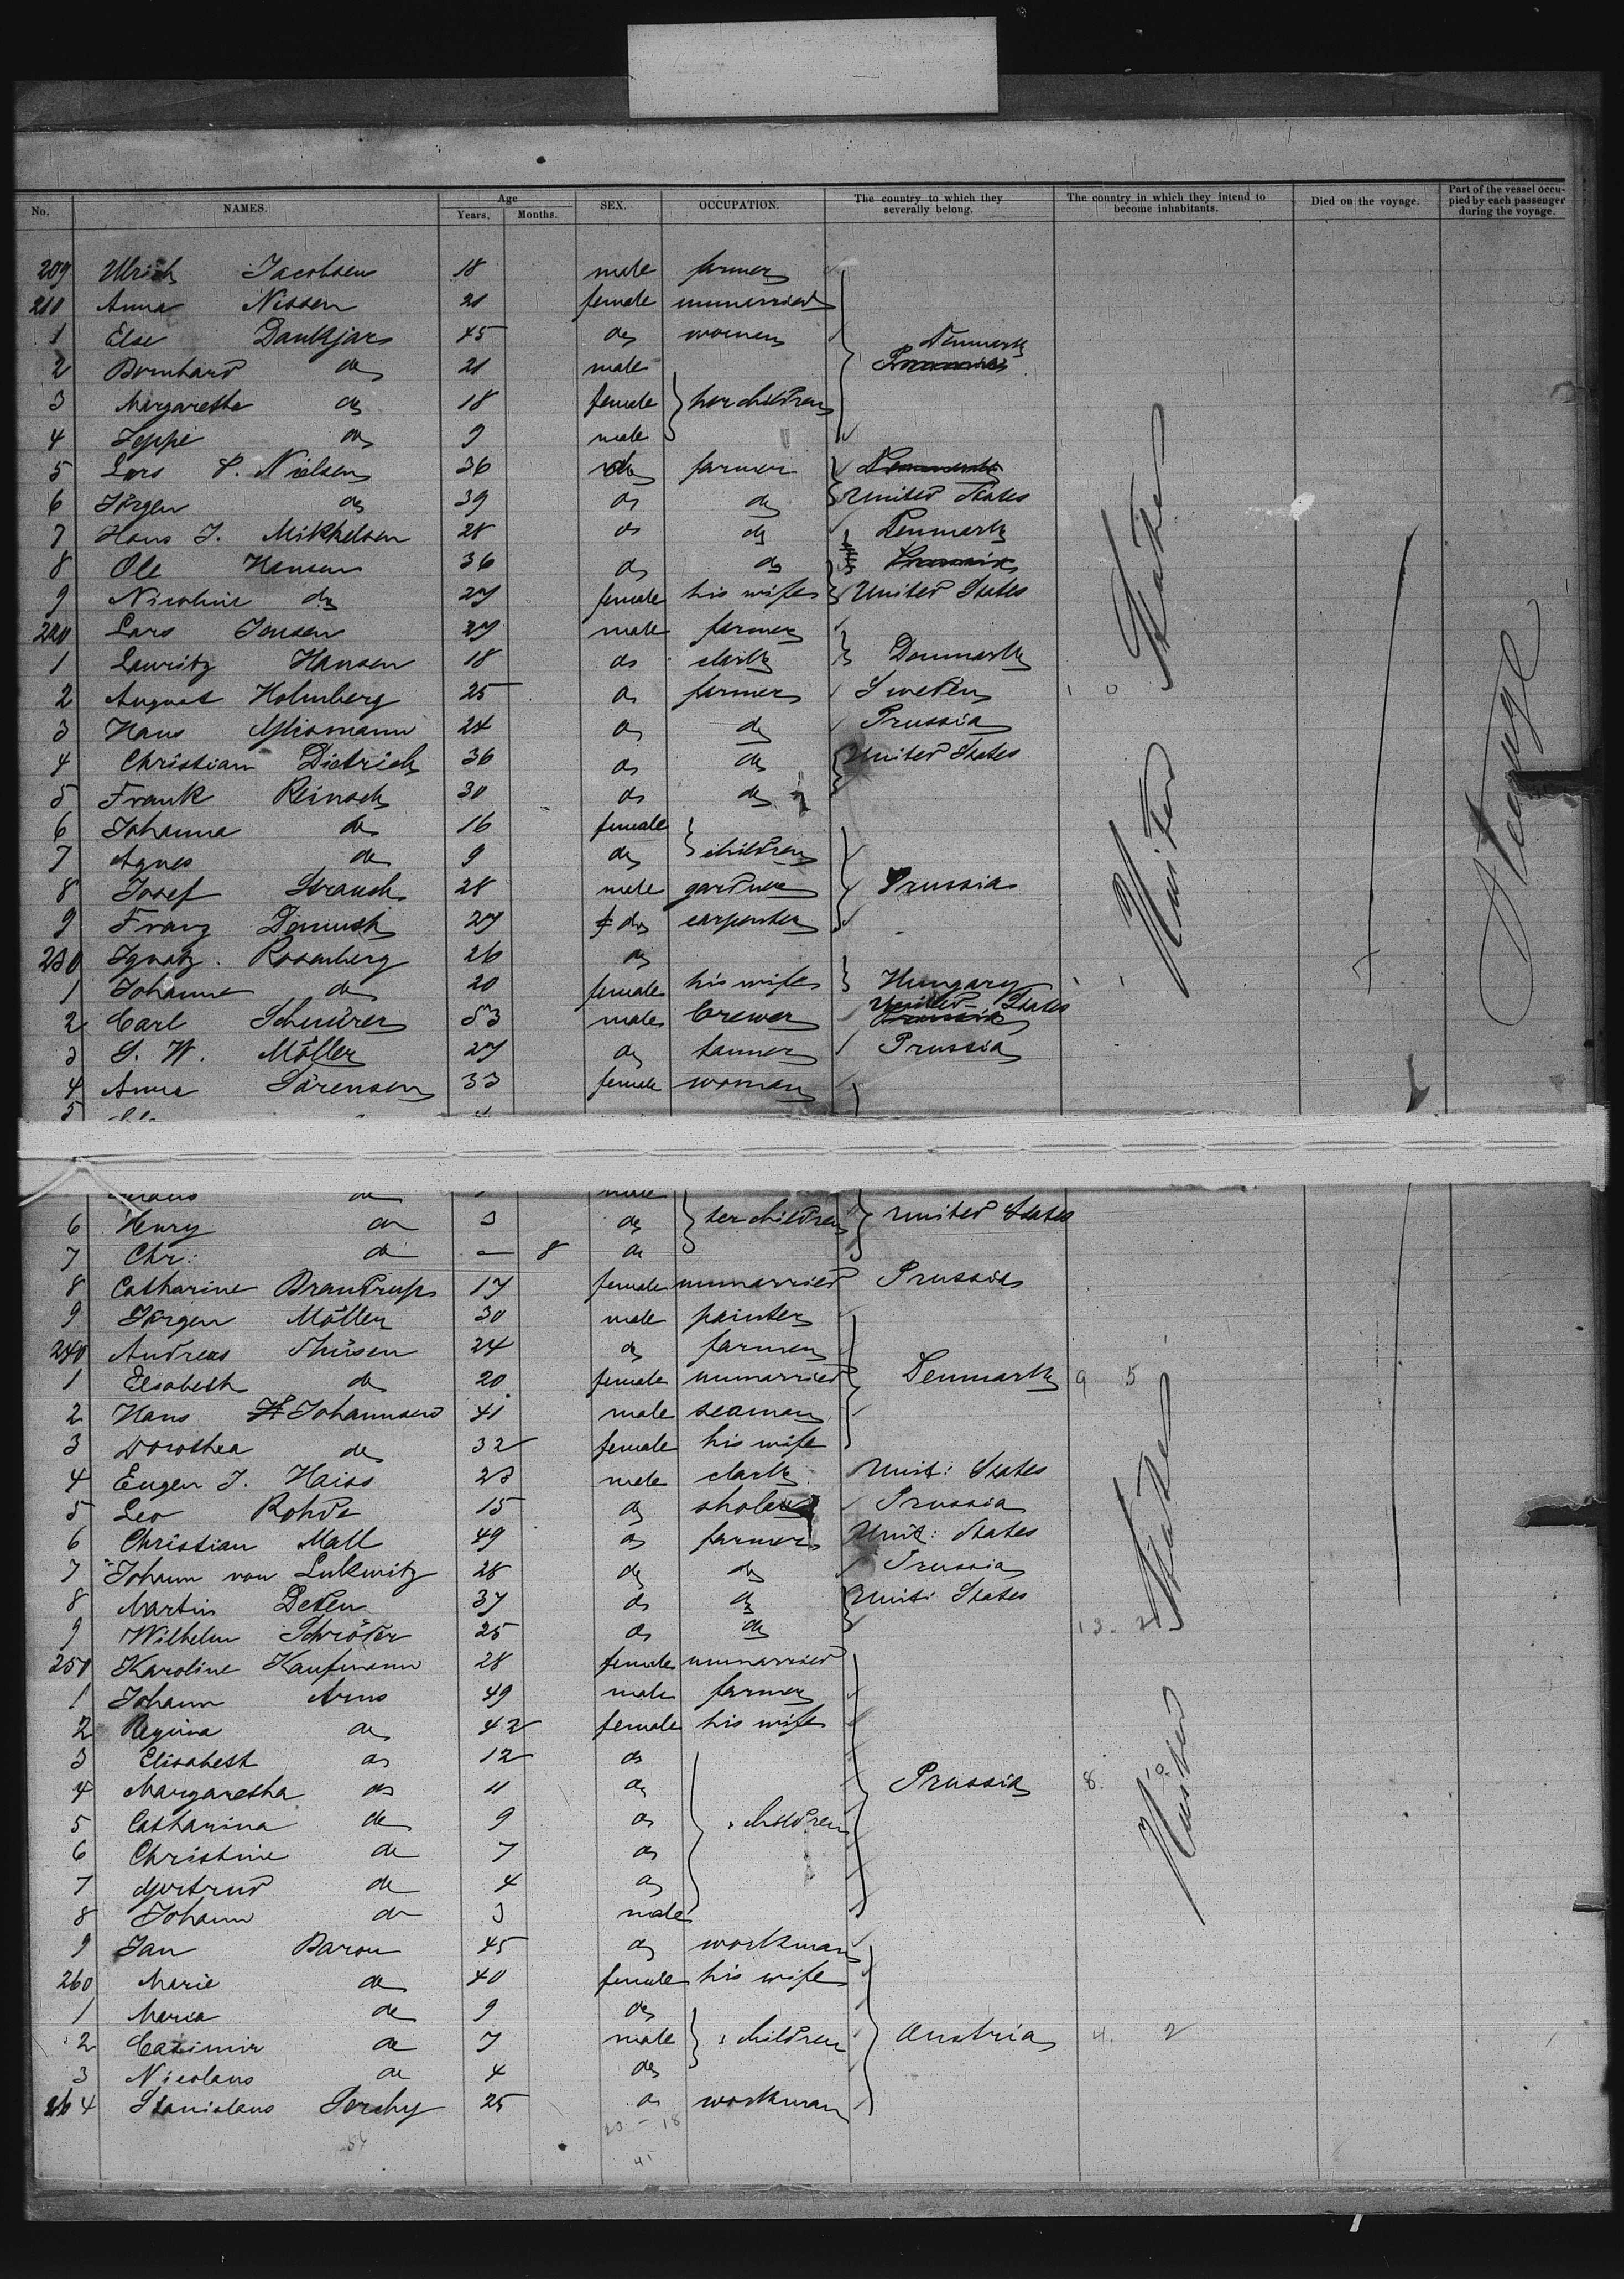 No. NAMES. Age Years. Months. SEX. OCCUPATION. The country to which they severally belong. The country in which they intend to become inhabitants. Died on the voyage. Part of the vessel occupied by each passenger during the voyage.
209 Ulrich Jacobsen 18 male farmer
210 Anna Nissen 21 female unmarried
1 Else Dankjar 45 do woman Denmark
2 Bernhard do 21 male
3 Margarethe do 18 female her children
4 Jeppe do 9 male
5 Lars P. Nielsen 36 do farmer Denmark
6 Jörgen do 39 do do United States
7 Hans J. Mikkelsen 28 do do Denmark
8 Ole Hansen 36 do do Prussia
9 Nicoline do 27 female his wife United States
220 Lars Jensen 27 male farmer
1 Lauritz Hansen 18 do clerk Denmark
2 August Holmberg 25 do farmer Sweden
3 Hans 24 do do Prussia
4 Christian Dietrich 36 do do United States
5 Frank Reinsch 30 do do
6 Johanna do 16 female
7 Agnes do 9 do children
8 Josef Strauch 28 male gardner Prussia
9 Franz 27 do carpenter
230 Ignatz Rosenberg 26 do
1 Johanne do 20 female his wife Hungary
2 Carl Scheurer 53 male brewer United States
3 S. W. Möller 27 do tanner Prussia
4 Anna Sörensen 33 female woman
5
do male
6 Henry do 3 do her children United States
7 Chr: do — 8 do
8 Catharine Brandrup 17 female unmarried Prussia
9 Jörgen Möller 30 male painter
240 Andreas Thüsen 24 do farmer
1 Elsabeth do 20 female unmarried Denmark 9 5
2 Hans H Johannsen 41 male seaman
3 Dorothea do 32 female his wife
4 Eugen J. Haiss 23 male clark Unit: States
5 Leo Rohde 15 do Prussia
6 Christian Mall 49 do farmer Unit: States
7 Johann von Lukowitz 28 do do Prussia
8 Martin Deten 37 do do Unit: States
9 Wilhelm Schröder 25 do do 13. 2
250 Karoline Kaufmann 28 female unmarried
1 Johann Arns 49 male farmer
2 Regina do 42 female his wife
3 Elisabeth do 12 do
4 Margaretha do 11 do Prussia 8. 10.
5 Catharina do 9 do children
6 Christine do 7 do
7 Gertrud do 4 do
8 Johann do 3 male
9 Jan Baron 45 do workman
260 Marie do 40 female his wife
1 Maria do 9 do
2 Cazimir do 7 male children Austria 4. 2
3 Nicolaus do 4 do
264 Stanislaus 25 do workman
23 - 18
41
United States
United States
Steerage